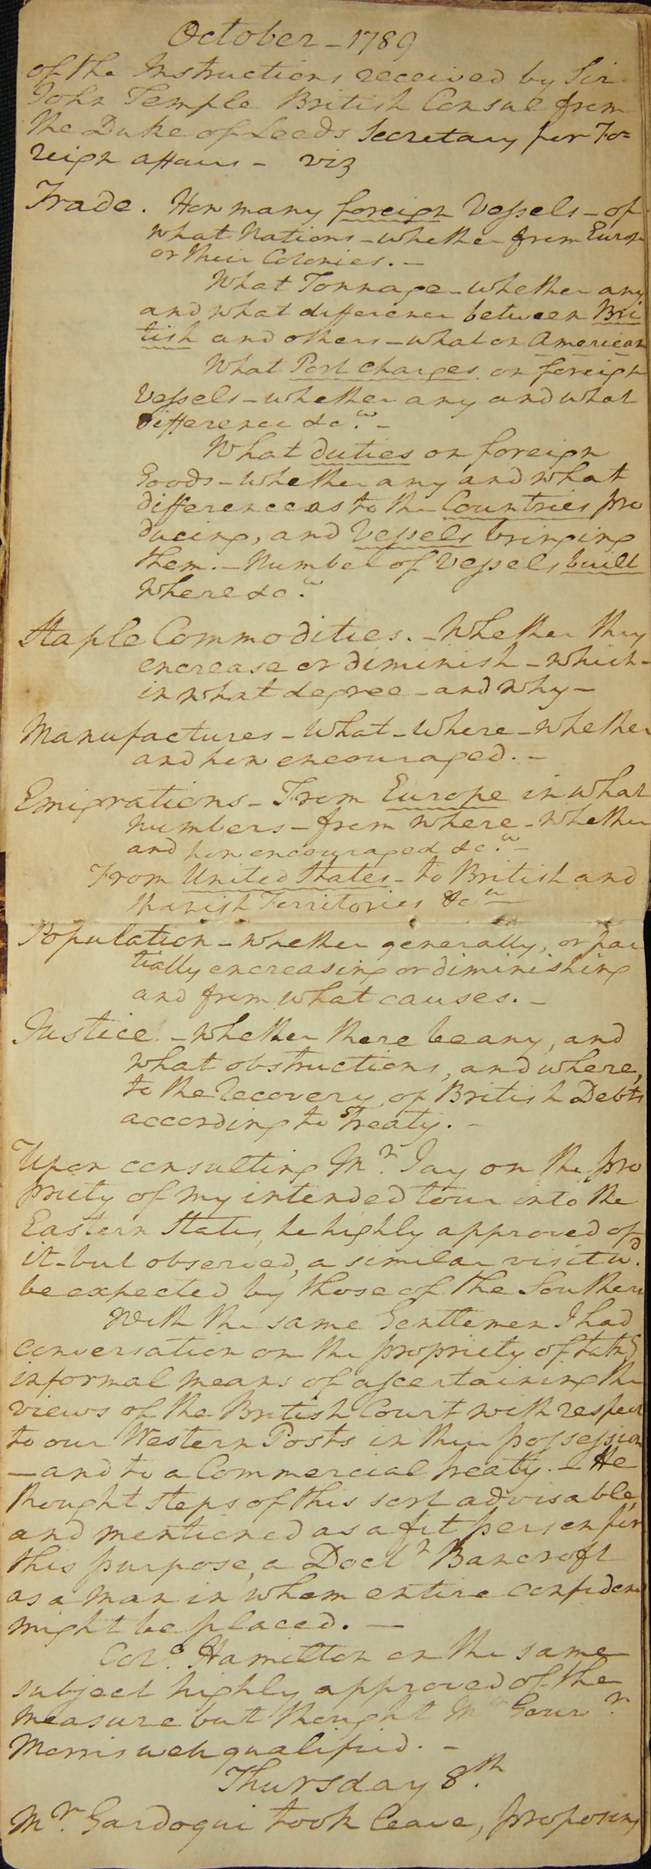 October - 1789
of the Instructions received by Sir
John Temple British Consul from
the Duke of Leeds Secretary for Fo=
reign affairs - viz
Trade. How many foreign Vessels - of
what Nations - whether from Europe
or their Colonies. -
What Tonnage - whether any
and what difference between Bri
tish and others - what on American
What Port charges on foreign
Vessels - whether any and what
difference &ca. -
What duties on foreign
Goods - whether any and what
difference as to the Countries pro
ducing, and Vessels bringing
them. - Number of Vessels built
where &ca.
Staple Commodities. - Whether they
encrease or diminish - which -
in what degree - and why -
Manufactures - what - where - whether
and how encouraged. -
Emigrations - From Europe in what
numbers - from where - whether
and how encouraged &ca. -
From United States - to British and
Spanish Territories &ca -
Population - whether generally, or par
tially encreasing or diminishing
and from what causes. -
Justice - whether there be any, and
what obstructions, and where,
to the recovery of British Debts
according to Treaty. -
Upon consulting Mr. Jay on the pro
priety of my intended tour into the
Eastern States, he highly approved of
it - but observed, a similar visit wd.
be expected by those of the Southern
With the same Gentlemen I had
conversation on the propriety of takg
informal means of ascertaining the
views of the British Court with respect
to our Western Posts in their possession
- and to a Commercial treaty. - He
thought steps of this sort advisable,
and mentioned as a fit person for
this purpose, a Doctr. Bancroft
as a man in whom entire confidence
might be placed. -
Colo. Hamilton on the same
subject highly approved of the
measure but thought Mr. Gouvr.
Morris well qualified. -
Thursday 8th.
Mr. Gardoqui took leave, proposing